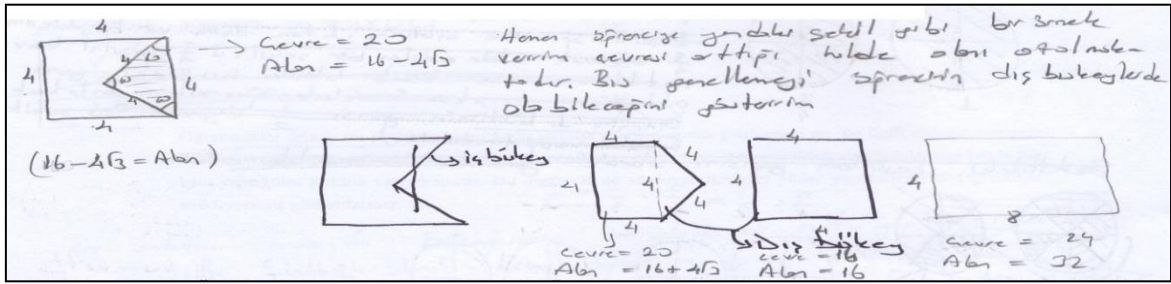 4
4
4
60
4
60
4
60
4
→ Çevre = 20
Alan = 16 - 4√3
Hemen öğrenciye yandaki şekil gibi bir örnek
veririm çevresi arttığı halde alanı azalmak-
tadır. Bu genellemeyi öğrencinin dış bükeylerde
olabileceğini gösteririm
(16 - 4√3 = Alan)
→ iç bükey
4
4
4
4
4
4
Çevre = 20
Alan = 16 + 4√3
4
4
→ Dış Bükey
Çevre = 16
Alan = 16
4
8
Çevre = 24
Alan = 32